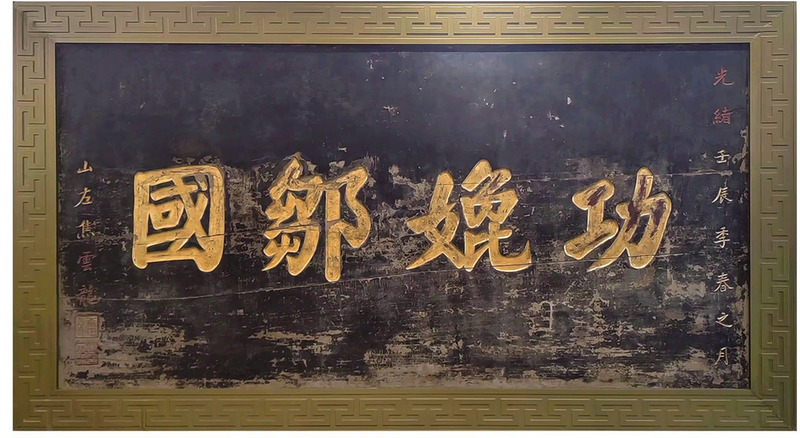 光緒壬辰季春之月
功媲鄒國
山左焦雲龍